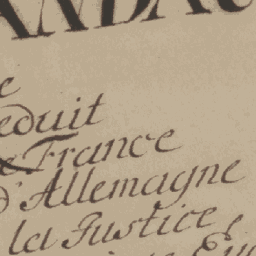 ANDAU
e
eduit
e France
d'Allemagne
la Justice